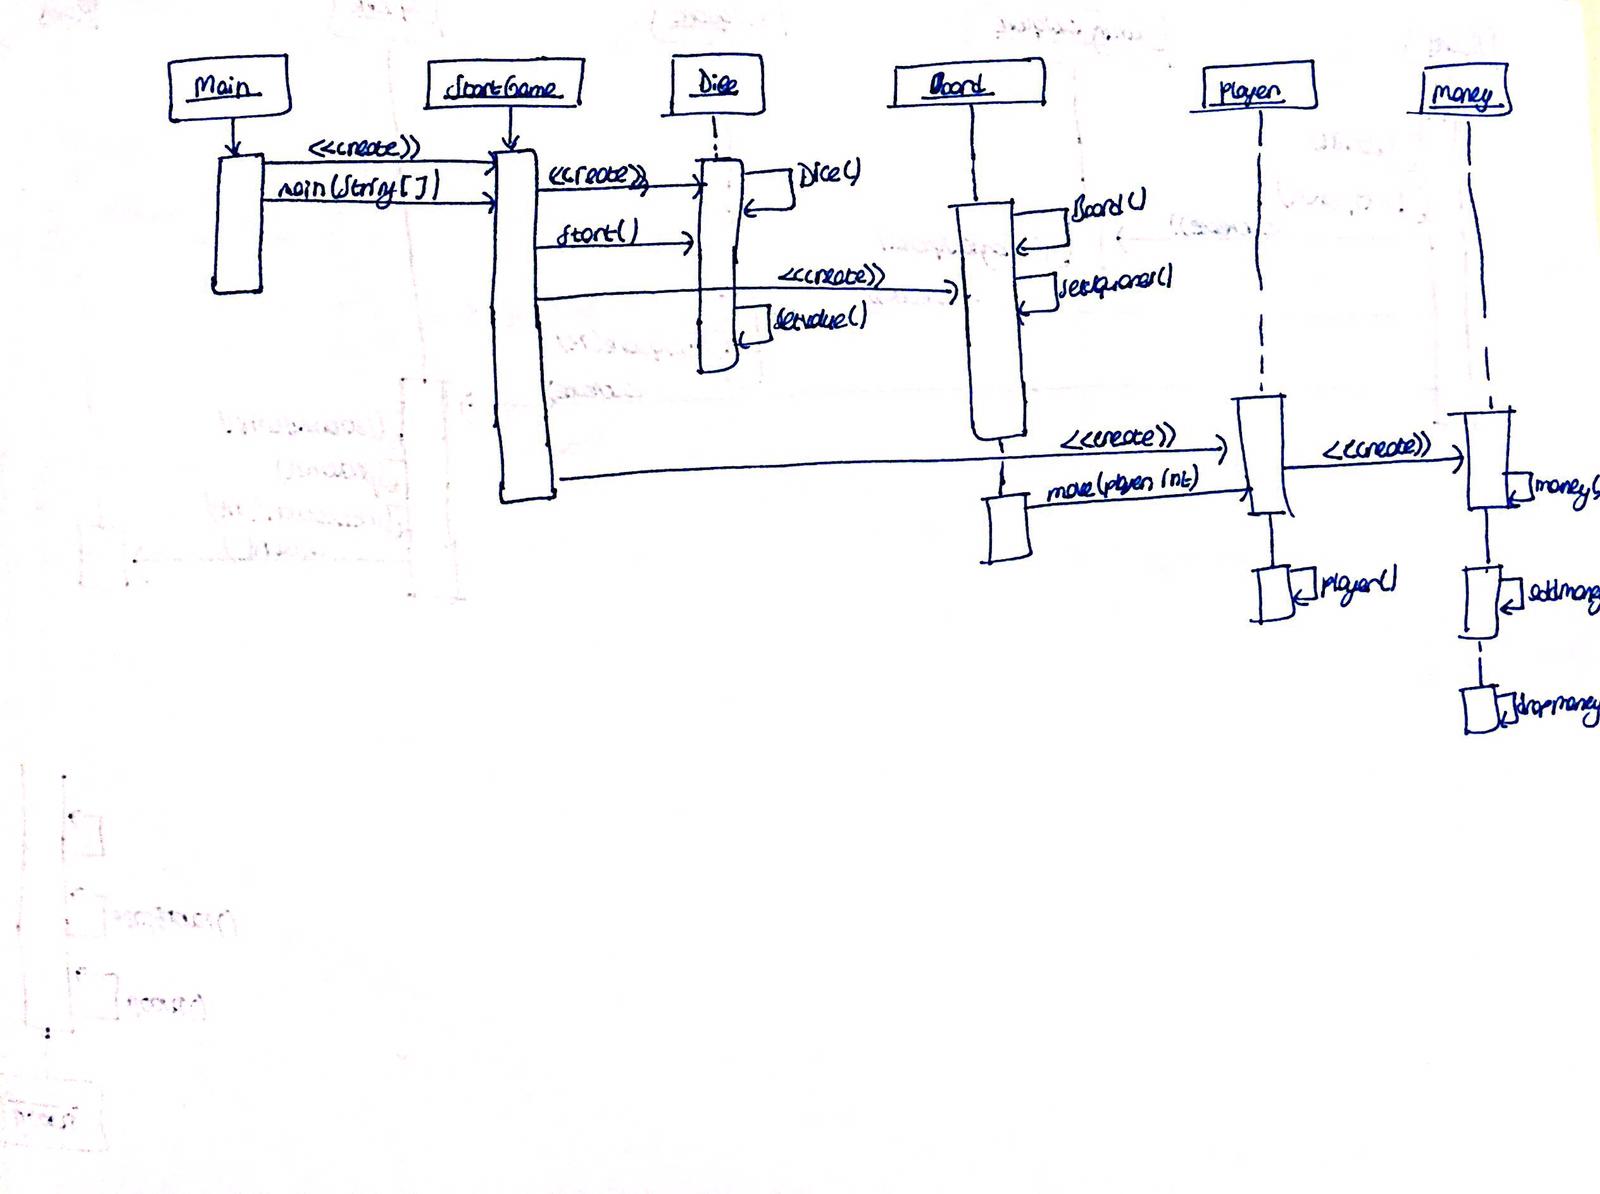 Main
StartGame
Dice
Board
player
money
<<create>>
main(String[])
<<create>>
Dice()
start()
<<create>>
setvalue()
Board()
setSquares()
<<create>>
move(player int)
<<create>>
money(
player()
addmoney
dropmoney